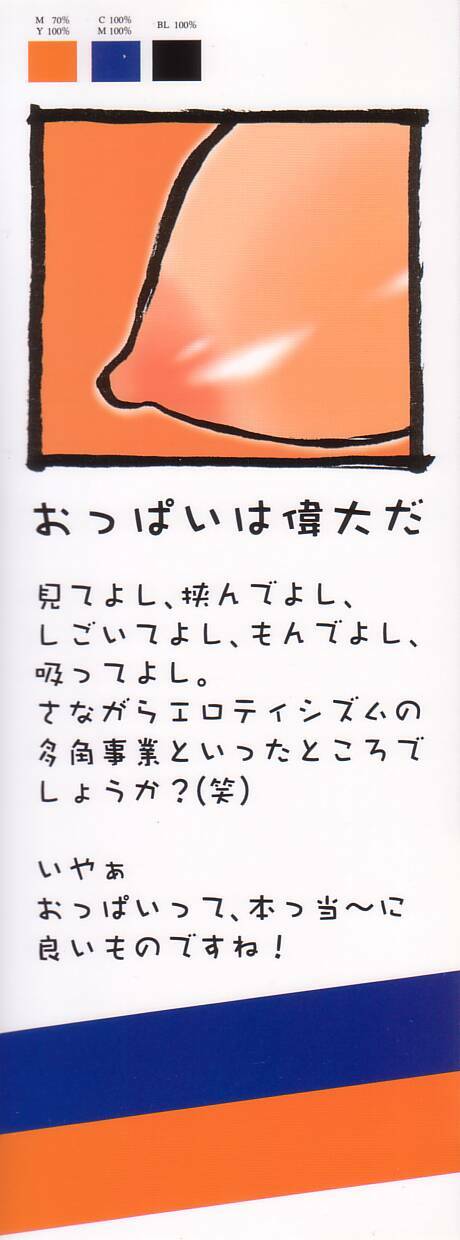 M 70%
Y 100%
C 100%
M 100%
BL 100%
おっぱいは偉大だ
見てよし、挟んでよし、
しごいてよし、もんでよし、
吸ってよし。
さながらエロティシズムの
多角事業といったところで
しょうか?(笑)
いやぁ
おっぱいって、本っ当～に
良いものですね！